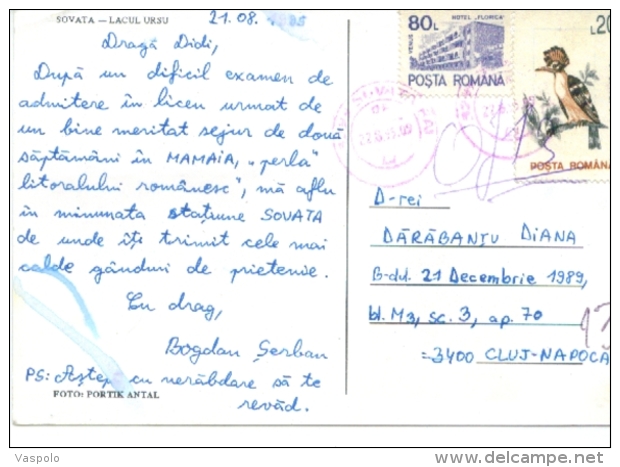 SOVATA — LACUL URSU
21.08.
Dragă Didi,
După un dificil examen de
admitere în liceu urmat de
un bine meritat sejur de două
săptămâni în MAMAIA, „perla
litoralului românesc", mă aflu
în minunata stațiune SOVATA
de unde îți trimit cele mai
calde gânduri de prietenie.
Cu drag,
Bogdan Șerban
PS: Aștept cu nerăbdare să te
revăd.
FOTO: PORTIK ANTAL
80L
HOTEL „FLORICA"
VENUS
POȘTA ROMÂNĂ
L20
POȘTA ROMÂNĂ
D-rei
DĂRĂBANȚU DIANA
B-dul 21 Decembrie 1989,
bl. M3, sc. 3, ap. 70
3400 CLUJ-NAPOCA
Vaspolo
www.delcampe.net